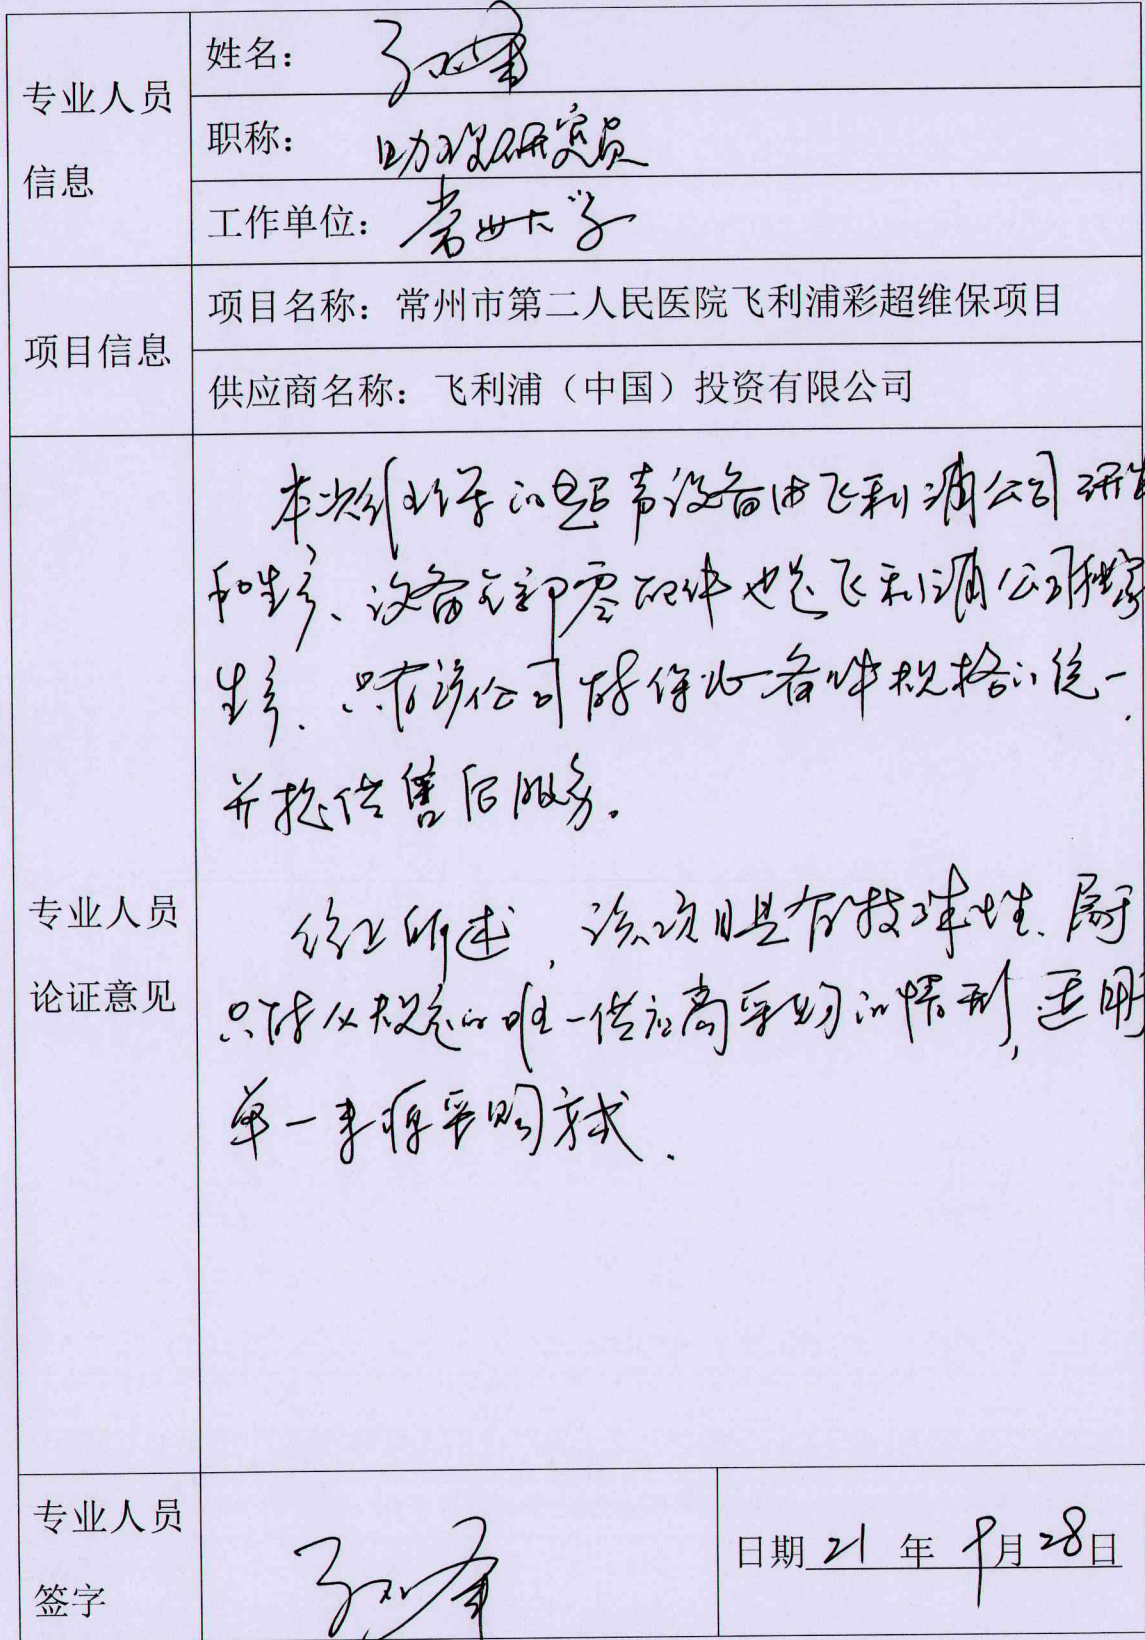 专业人员
信息
姓名：
职称： 助理研究员
工作单位： 常州大学
项目信息
项目名称：常州市第二人民医院飞利浦彩超维保项目
供应商名称：飞利浦（中国）投资有限公司
专业人员
论证意见
本次维保的超声设备由飞利浦公司研发
和生产、设备全部零配件也是飞利浦公司独家
生产、只有该公司能保证备件规格的统一、
并提供售后服务。
综上所述，该项目具有特殊性、属于
只能从规定的唯一供应商采购的情形，适用
单一来源采购方式.
专业人员
签字
日期 21 年 9月 28日